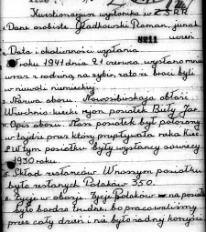 Kwestionariusz wysłannika w Z.S.R.R.
1 Dane osobiste Gładkowski Roman, junak
uczeń
4211
2 Data i okoliczności wysłania
roku 1941 dnia 21 czerwca, wysłano mnie
wraz z rodziną na sybir, zato że braci byli
w niewoli niemieckiej.
3 Nazwa obozu: Nowosibirskaja obłast
rejon posiołek Bieły Jar
4 Opis obozu: Nasz posiołek był położony
w tajdze przez który przepływała rzeka Kiet
w tym posiołku byli wysłańcy sowieccy
1930 roku.
5 Skład zesłańców W naszym posiołku
było zesłanych Polaków 350.
6 Życie w obozie. Życie Polaków na posiołku
było bardzo trudne bo pracowaliśmy
przez cały dzień i nie było żadnej korzyści